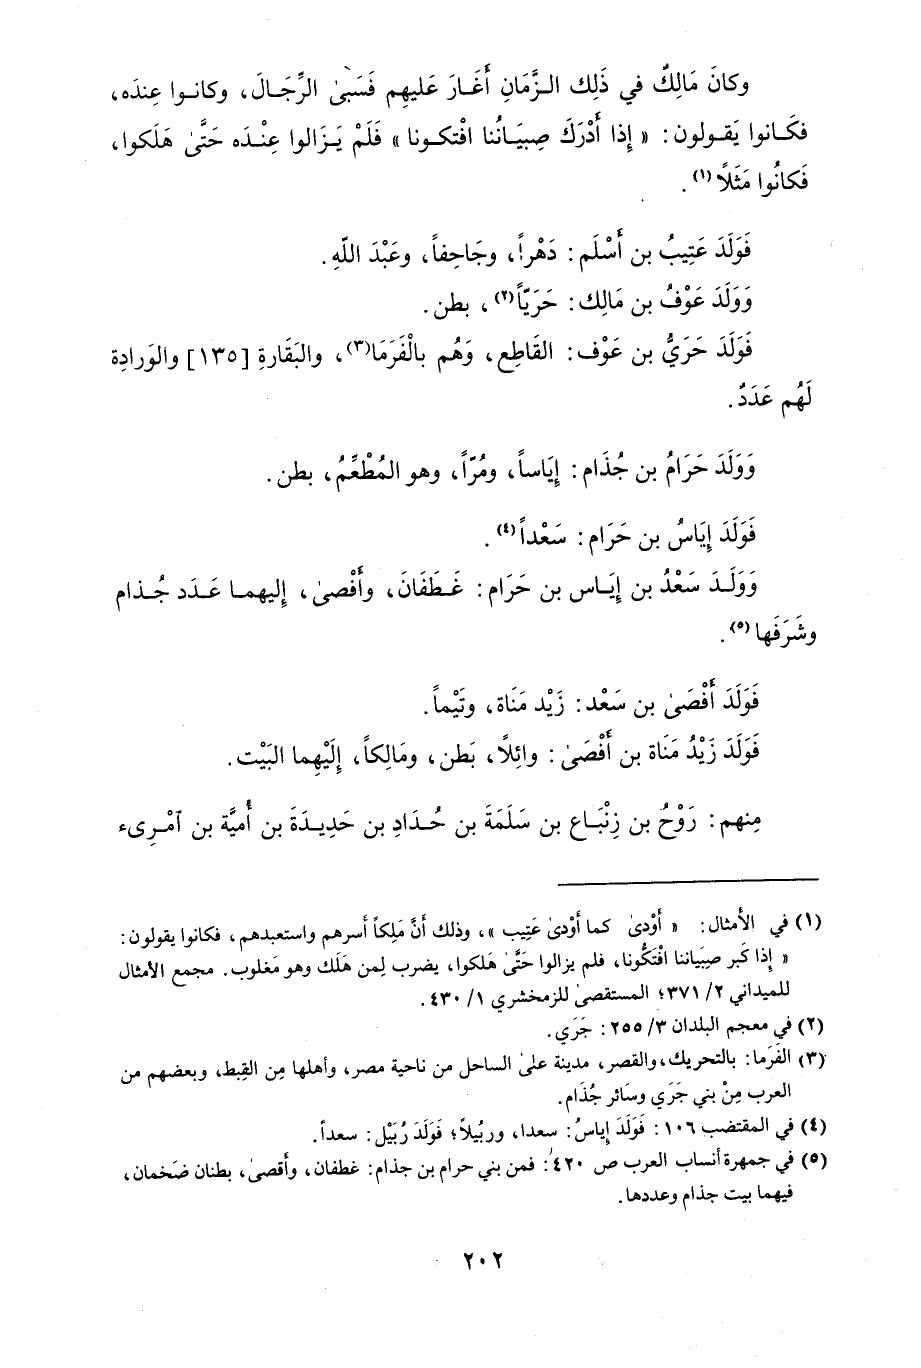 وكانَ مَالِكٌ في ذَلِك الـزَّمَانِ أَغَـارَ عَليهِم فَسَبىٰ الرِّجَـالَ، وكانـوا عِندَه،
فكَـانوا يَقـولون: « إذا أَدْرَكَ صِبيَـانُنا افْتكـونا » فَلَمْ يَـزَالوا عِنْـدَه حَتَّىٰ هَلَكوا،
فَكانُوا مَثَلاً(١).
فَوَلَدَ عَتِيبُ بن أَسْلَم: دَهْراً، وجَاحِفاً، وعَبْدَ اللّهِ.
وَوَلَدَ عَوْفُ بن مَالِك: حَرَيّاً(٢)، بطن.
فَوَلَدَ حَرَيُّ بن عَوْف: القَاطِع، وَهُم بالْفَرَمَا(٣)، والبَقَارةِ [١٣٥] والوَرادِة
لَهُم عَدَدٌ.
وَوَلَدَ حَرَامُ بن جُذَام: إِيَاساً، ومُرّاً، وهو المُطْعِّمُ، بطن.
فَوَلَدَ إِيَاسُ بن حَرَام: سَعْداً(٤).
وَوَلَـدَ سَعْدُ بن إيَـاس بن حَرَام: غَـطَفَانَ، وأَفْصىٰ، إليهمـا عَـدَد جُـذام
وشَرَفَها(٥).
فَوَلَدَ أَفْصَىٰ بن سَعْد: زَيْد مَنَاة، وتَيْماً.
فَوَلَدَ زَيْدُ مَنَاة بن أَفْصَىٰ: وائِلاً، بَطن، ومَالِكاً، إِلَيْهِما البَيْت.
مِنهم: رَوْحُ بن زِنْبَـاع بن سَلَمَةَ بن حُـدَادِ بن حَدِيـدَةَ بن أُميَّة بن ٱمْـرِىء
(١) في الأمثال: « أَوْدىٰ كما أَوْدىٰ عَتِيب »، وذلك أنَّ مَلِكاً أسرهم واستعبدهم، فكانوا يقولون:
« إذا كَبر صِبيَاننا افْتَكُّونا، فلم يزالوا حَتَّى هَلكوا، يضرب لِمن هَلَك وهو مَغلوب. مجمع الأمثال
للميداني ٢/ ٣٧١؛ المستقصىٰ للزمخشري ١/ ٤٣٠.
(٢) في معجم البلدان ٣/ ٢٥٥: جَرَي.
(٣) الفَرَما: بالتحريك، والقصر، مدينة علىٰ الساحل من ناحية مصر، وأهلها مِن القِبط، وبعضهم من
العرب مِنْ بني جَرَي وسَائر جُذَام.
(٤) في المقتضب ١٠٦: فَوَلَدَ إياسُ: سعدا، وربُيلاً؛ فَوَلَدَ رُبَيْل: سعداً.
(٥) في جمهرة أنساب العرب ص ٤٢٠: فمن بني حرام بن جذام: غطفان، وأَقصىٰ، بطنان ضَخمان،
فيهما بيت جذام وعددها.
٢٠٢